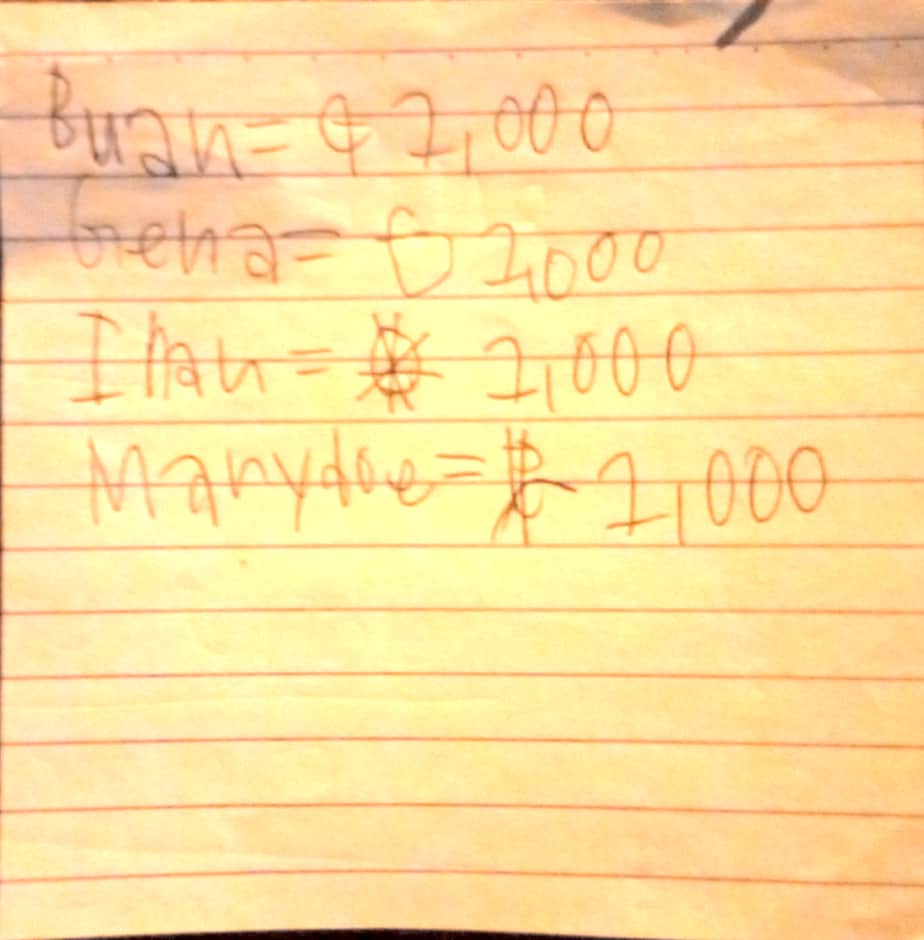 Buan = ¢ 1,000
Gena = 1,000
Iman = 1,000
Manydoe = 1,000